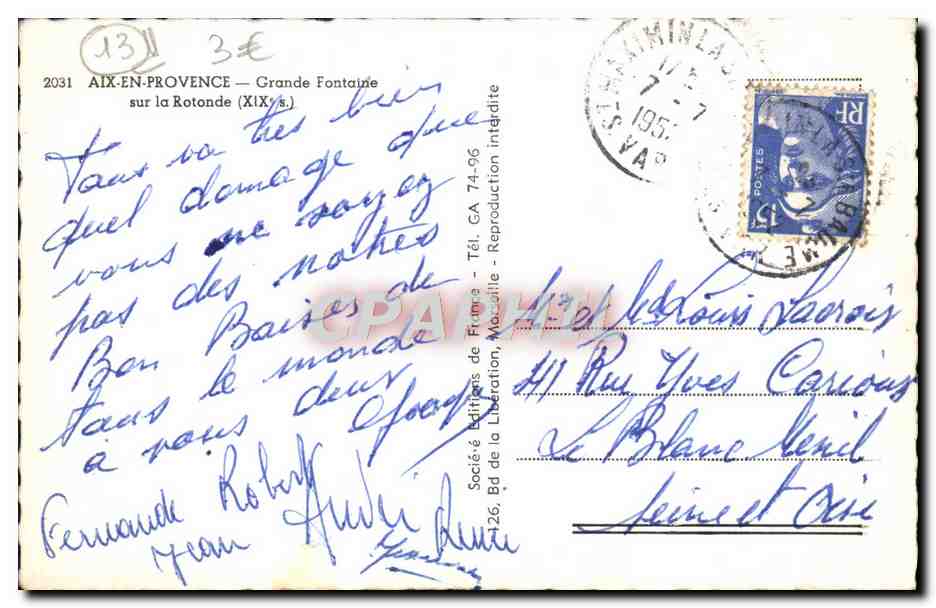 13
3€
2031 AIX-EN-PROVENCE — Grande Fontaine
sur la Rotonde (XIXe s.)
Tous va très bien
quel domage que
vous ne soyez
pas des notres
Bon Baises de
tous le monde
à vous deux
Fernande Robert
Jean André Renée
Société Editions de France - Tél. GA 74-96
126, Bd de la Libération, Marseille - Reproduction interdite
CPARHI
ST MAXIMIN LA
17
7 - 7
195
VAR
BAUME
RF
POSTES
15F
Mr et Me Louis Lacroix
41 Rue Yves Carious
Le Blanc Menil
Seine et Oise